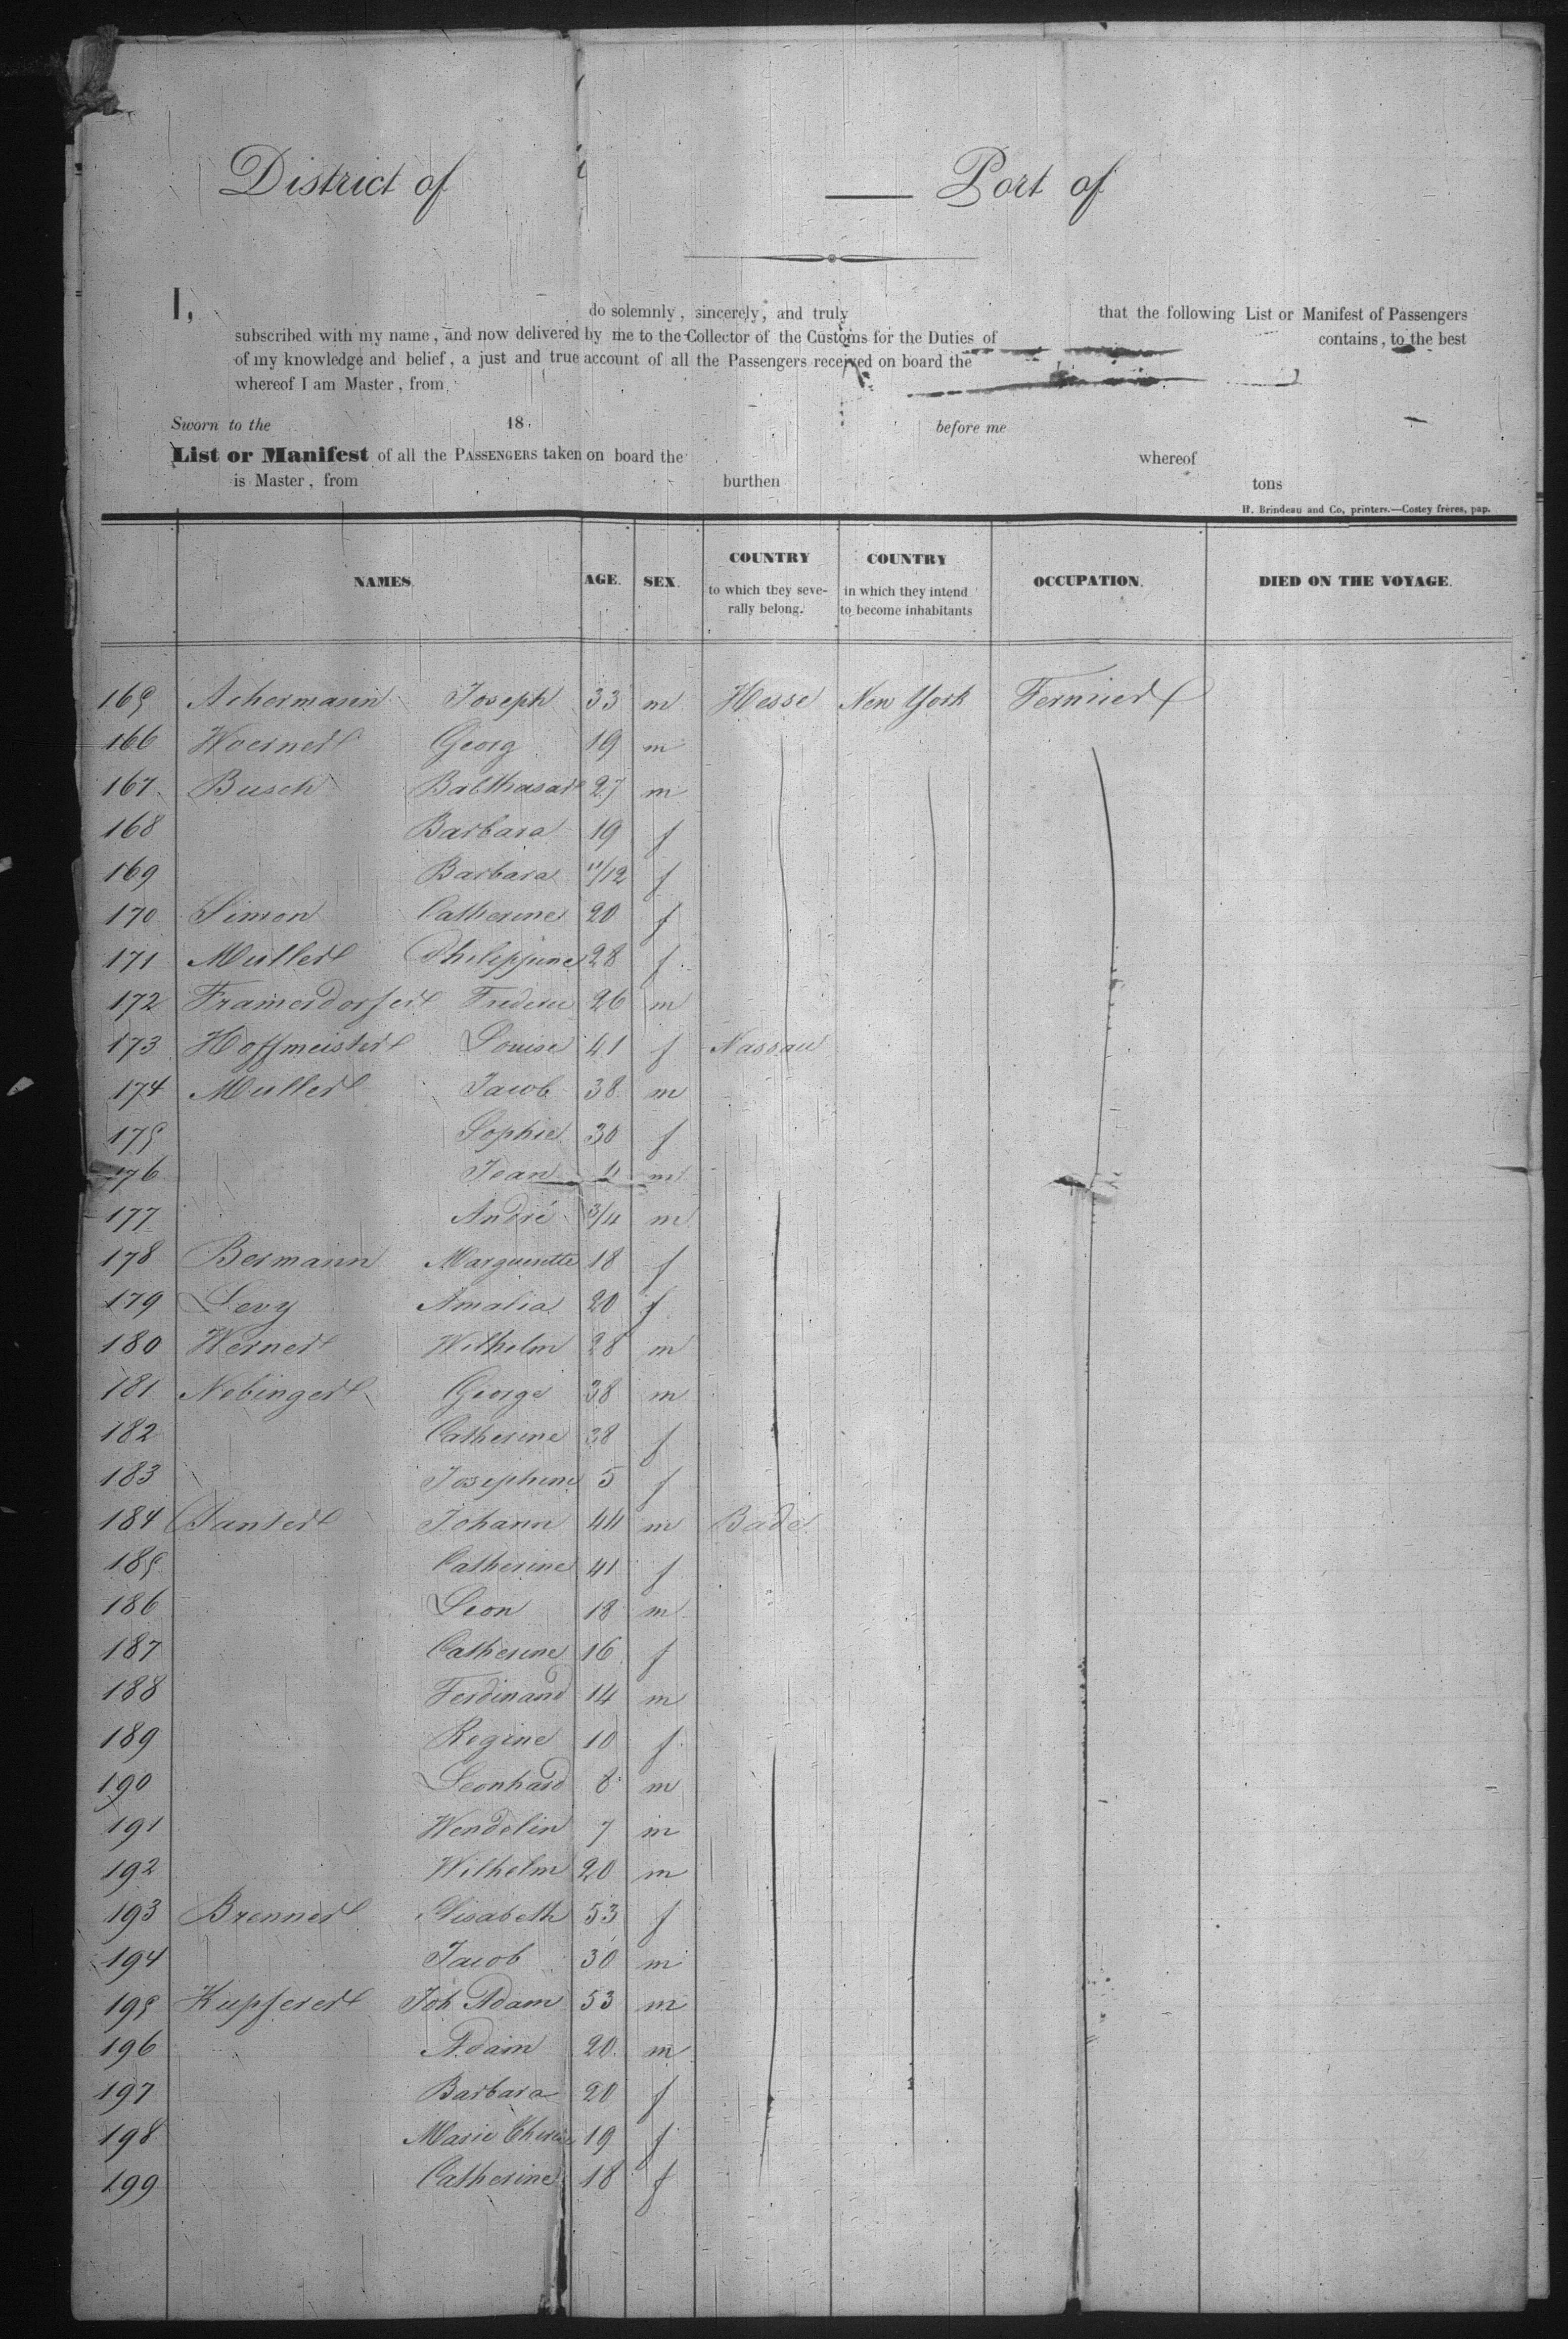 District of — Port of
I, do solemnly, sincerely, and truly that the following List or Manifest of Passengers
subscribed with my name, and now delivered by me to the Collector of the Customs for the Duties of contains, to the best
of my knowledge and belief, a just and true account of all the Passengers received on board the
whereof I am Master, from
Sworn to the 18 before me
List or Manifest of all the PASSENGERS taken on board the whereof
is Master, from burthen tons
H. Brindeau and Co, printers.—Costey frères, pap.
NAMES. AGE. SEX. COUNTRY to which they severally belong. COUNTRY in which they intend to become inhabitants OCCUPATION. DIED ON THE VOYAGE.
165 Achermann Joseph 33 m Hesse New York
166 Woerner Georg 19 m
167 Busch Balthasar 27 m
168 Barbara 19 f
169 Barbara 11/12 f
170 Simon Catherine 20 f
171 Muller Philippine 28 f
172 26 m
173 Hoffmeister Louise 41 f Nassau
174 Muller Jacob 38 m
175 Sophie 30 f
176 Jean 4 m
177 André 3/4 m
178 Bermann Margueritte 18 f
179 Levy Amalia 20 f
180 Werner Wilhelm 28 m
181 Nebinger George 38 m
182 Catherine 38 f
183 Josephine 5 f
184 Panter Johann 44 m Bade
185 Catherine 41 f
186 Leon 18 m
187 Catherine 16 f
188 Ferdinand 14 m
189 Regine 10 f
190 Leonhard 8 m
191 Wendelin 7 m
192 Wilhelm 20 m
193 Brenner Elisabeth 53 f
194 Jacob 30 m
195 Kupferer Joh Adam 53 m
196 Adam 20 m
197 Barbara 20 f
198 Marie 19 f
199 Catherine 18 f